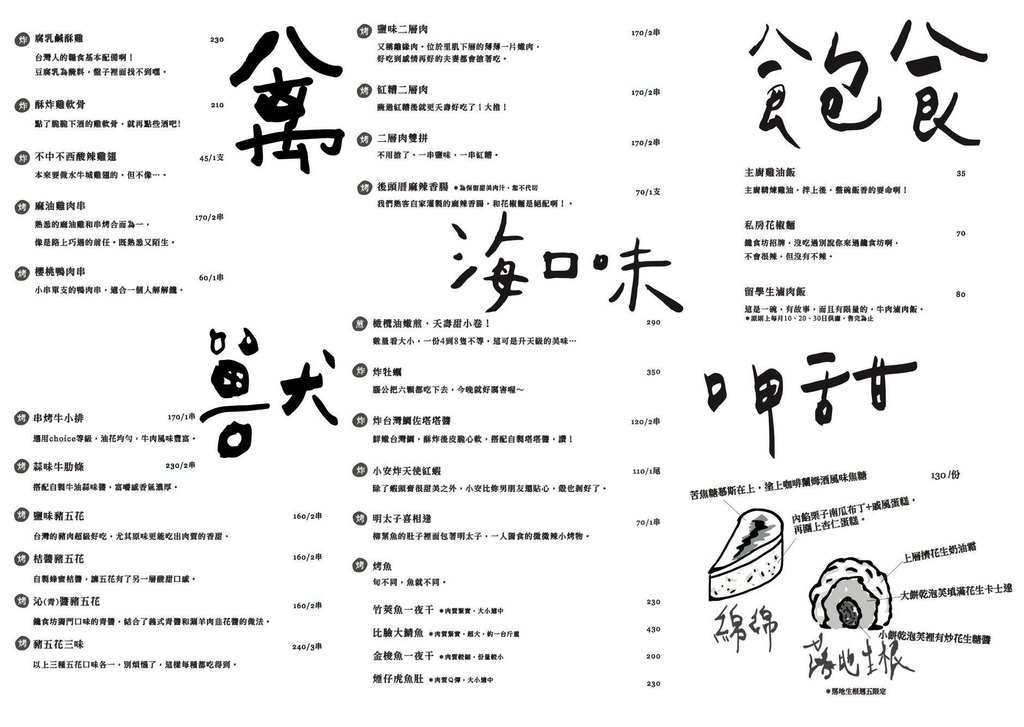 禽
炸 腐乳鹹酥雞 230
台灣人的糧食基本配備啊！
豆腐乳為醃料，盤子裡面找不到喔。
炸 酥炸雞軟骨 210
點了脆脆下酒的雞軟骨，就再點些酒吧!
炸 不中不西酸辣雞翅 45/1支
本來要做水牛城雞翅的，但不像…。
烤 麻油雞肉串 170/2串
熟悉的麻油雞和串烤合而為一，
像是路上巧遇的前任。既熟悉又陌生。
烤 櫻桃鴨肉串 60/1串
小串單支的鴨肉串，適合一個人解解饞。
獸犬
烤 串烤牛小排 170/1串
選用choice等級，油花均勻，牛肉風味豐富。
烤 蒜味牛肋條 230/2串
搭配自製牛油蒜味醬，富嚼感香氣濃厚。
烤 鹽味豬五花 160/2串
台灣的豬肉超級好吃，尤其原味更能吃出肉質的香甜。
烤 桔醬豬五花 160/2串
自製蜂蜜桔醬，讓五花有了另一層酸甜口感。
烤 沁(青)醬豬五花 160/2串
饞食坊獨門口味的青醬，結合了義式青醬和涮羊肉韭花醬的做法。
烤 豬五花三味 240/3串
以上三種五花口味各一，別煩惱了，這樣每種都吃得到。
烤 鹽味二層肉 170/2串
又稱離緣肉。位於里肌下層的薄薄一片嫩肉，
好吃到感情再好的夫妻都會搶著吃。
烤 紅糟二層肉 170/2串
醃過紅糟後就更夭壽好吃了！大推！
烤 二層肉雙拼 170/2串
不用搶了，一串鹽味，一串紅糟。
烤 後頭厝麻辣香腸 *為保留甜美肉汁，恕不代切 70/1支
我們熟客自家灌製的麻辣香腸，和花椒麵是絕配啊！。
海口味
煎 橄欖油嫩煎．夭壽甜小卷！ 290
數量看大小，一份4到8隻不等，這可是升天級的美味…
炸 炸牡蠣 350
腦公把六顆都吃下去，今晚就好厲害喔～
炸 炸台灣鯛佐塔塔醬 120/2串
鮮嫩台灣鯛，酥炸後皮脆心軟，搭配自製塔塔醬，讚！
炸 小安炸天使紅蝦 110/1尾
除了蝦頭膏很甜美之外，小安比妳男朋友還貼心，殼也剝好了。
烤 明太子喜相逢 70/1串
柳葉魚的肚子裡面包著明太子，一人獨食的微微辣小烤物。
烤 烤魚
旬不同，魚就不同。
竹莢魚一夜干 *肉質緊實，大小適中 230
比臉大鯖魚 *肉質緊實，超大，約一台斤重 430
金梭魚一夜干 *肉質較細，份量較小 200
煙仔虎魚肚 *肉質Q彈，大小適中 230
食飽食
主廚雞油飯 35
主廚精煉雞油，拌上後，整碗飯香的要命啊！
私房花椒麵 70
饞食坊招牌，沒吃過別說你來過饞食坊啊，
不會很辣，但沒有不辣。
留學生滷肉飯 80
這是一碗，有故事，而且有限量的，牛肉滷肉飯。
*原則上每月10、20、30日供應，售完為止
呷甜
130/份
苦焦糖慕斯在上，塗上咖啡蘭姆酒風味焦糖
內餡栗子南瓜布丁+戚風蛋糕，
再圍上杏仁蛋糕。
綿綿
上層擠花生奶油霜
大餅乾泡芙填滿花生卡士達
小餅乾泡芙裡有炒花生糖醬
落地生根
*落地生根週五限定